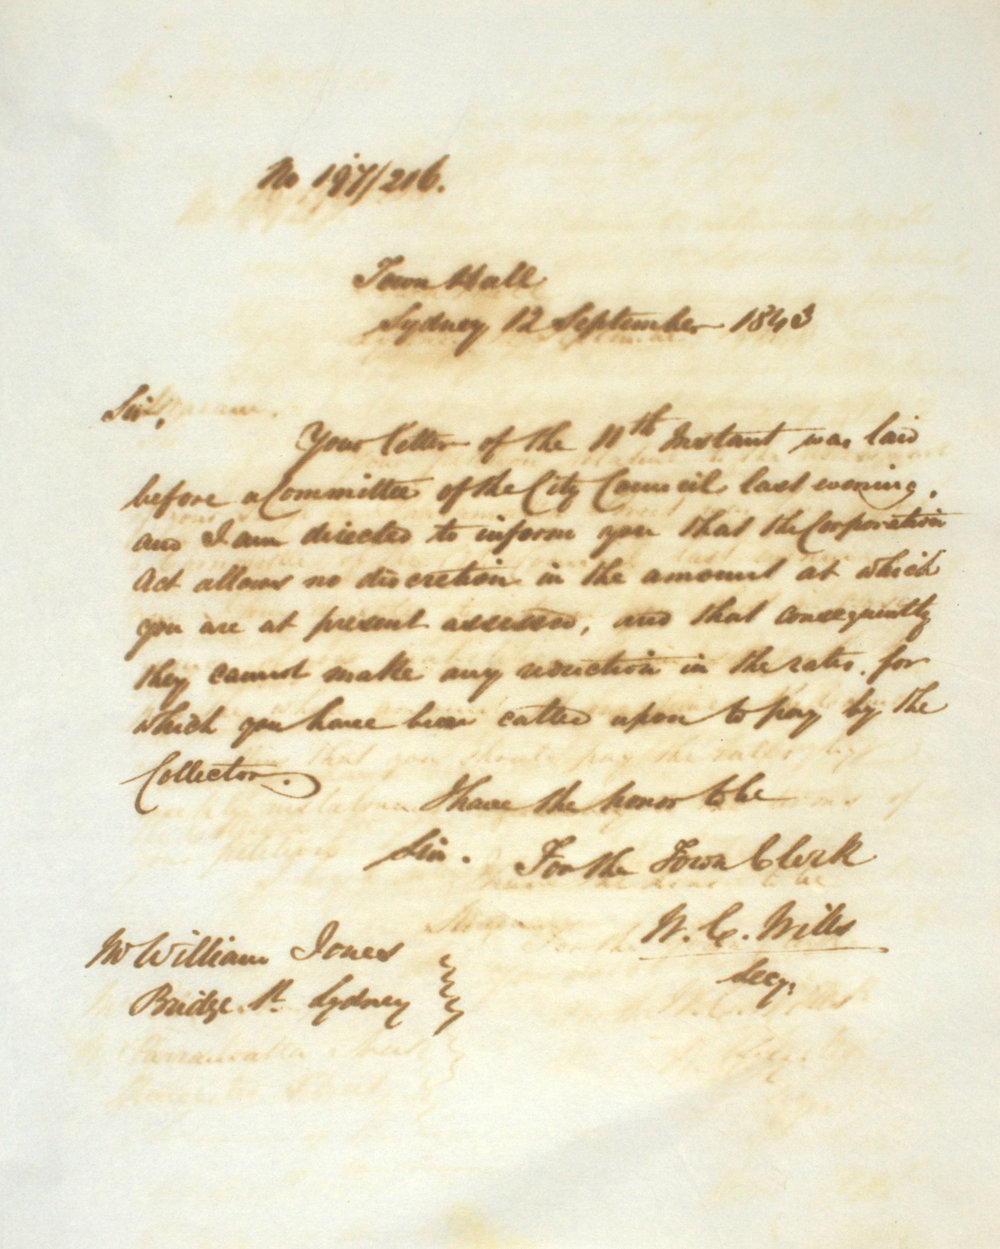 No 197/216.
Town Hall
Sydney 12 September 1843
Sir,
Your letter of the 11th Instant was laid
before a Committee of the City Council last evening,
and I am directed to inform you that the Corporation
Act allows no discretion in the amount at which
you are at present assessed, and that consequently
they cannot make any reduction in the rates for
which you have been called upon to pay by the
Collector.
I have the honor to be
Sir.
For the Town Clerk
W. C. Wills
Secy.
Mr William Jones
Bridge St. Sydney